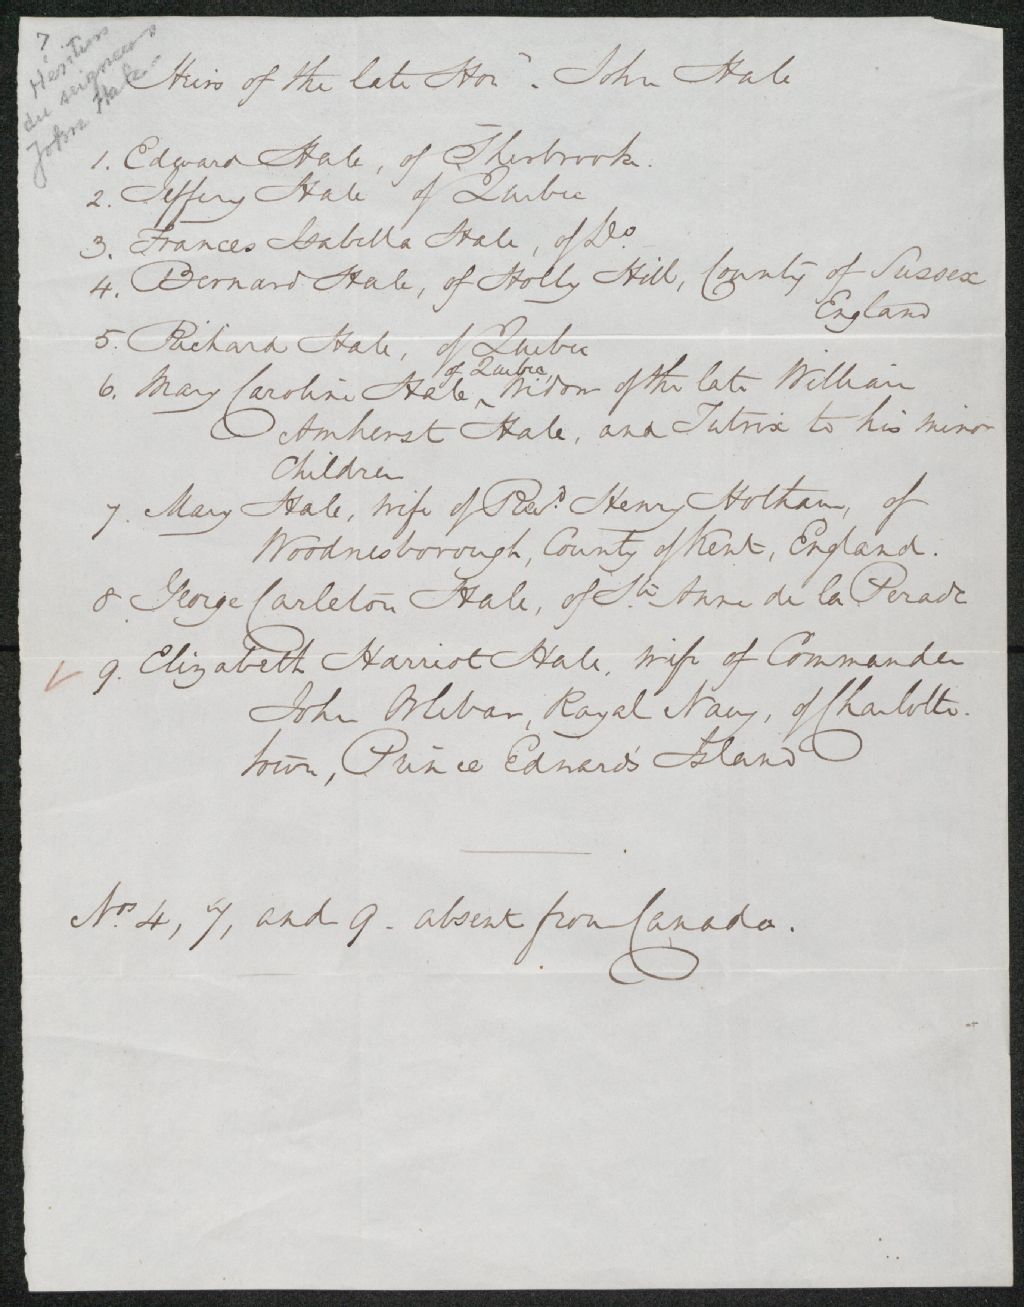 7
Héritiers
du seigneur
John Hale
Heirs of the late Honᵉ. John Hale
1. Edward Hale, of Sherbrooke.
2. Jeffery Hale of Quebec
3. Frances Isabella Hale, of Dᵒ
4. Bernard Hale, of Holly Hill, County of Sussex
England
5. Richard Hale, of Quebec
of Quebec,
6. Mary Caroline Hale, ^ Widow of the late William
Amherst Hale, and Tutrix to his minor
Children
7. Mary Hale, wife of Revᵈ. Henry Hotham, of
Woodnesborough, County of Kent, England.
8. George Carleton Hale, of Sᵗᵉ Anne de la Perade
9. Elizabeth Harriot Hale, wife of Commander
John Orlebar, Royal Navy, of Charlotte-
town, Prince Edward's Island
Nᵒˢ 4, 7, and 9 - absent from Canada.